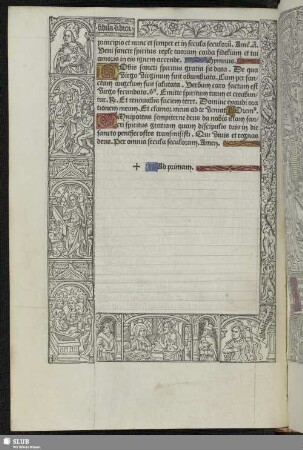 principio et nunc et semper et in secula seculorū. Amē. A.
Veni sancte spiritus reple tuorum corda fidelium et tui
amoris in eis ignem accende. Hymnus.
Nobis sancti spiritus gratia sit data. De qua
virgo virginum fuit obumbrata. Cum per san
ctum angelum fuit salutata. Verbum caro factum est
virgo fecundata. Emitte spiritum tuum et creabun
tur. R. Et renovabis faciem terre. Domine exaudi ora
tionem meam. Et clamor meus ad te veniat. Oremꝰ.
Omnipotens sempiterne deus da nobis illam san
cti spiritus gratiam quam discipulis tuis in die
sancto penthecostes transmisisti. Qui vivis et regnas
deus. Per omnia secula seculorum. Amen.
+ Ad primam.
SLUB
Wir führen Wissen.